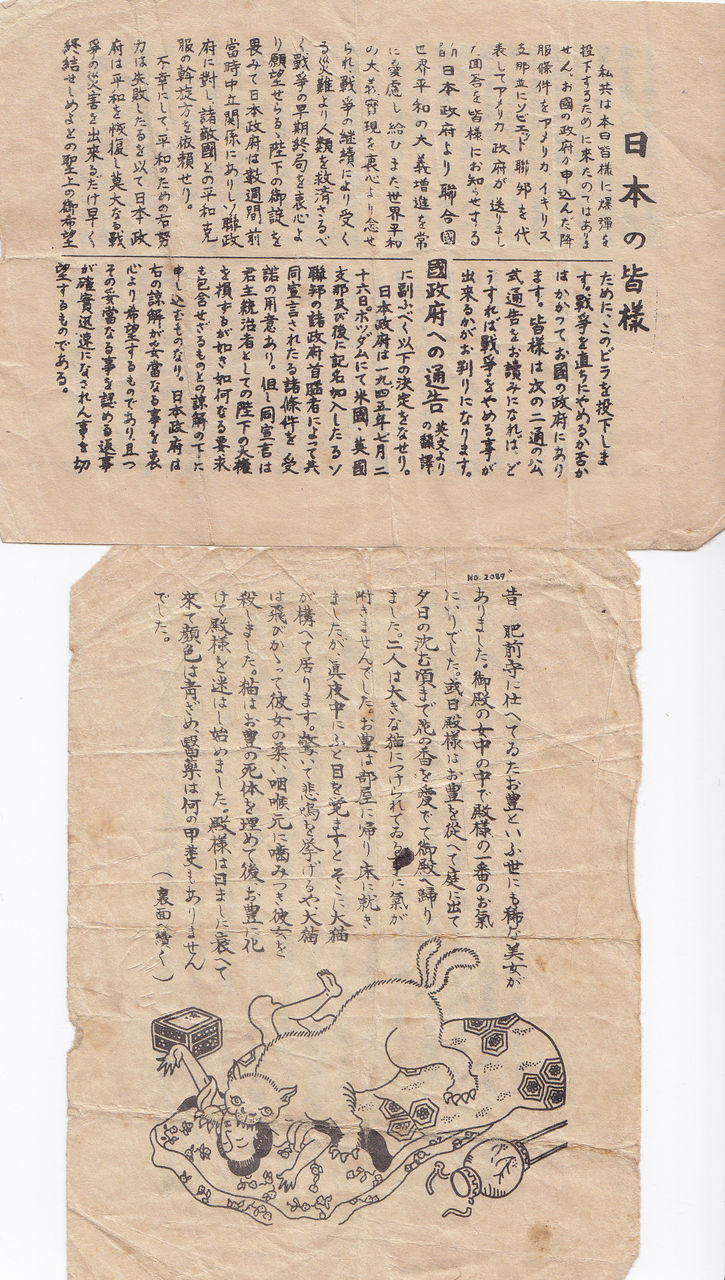 日本の皆様
私共は本日皆様に爆彈を
投下するために来たのではありま
せん、お國の政府が申込んだ降
服條件をアメリカ、イギリス
支那並にソビエット聯邦を代
表してアメリカ政府が送りまし
た回答を皆様にお知らせする
ために、このビラを投下しま
す。戰爭を直ちにやめるか否か
はかゝつてお國の政府にあり
ます。皆様は次の二通の公
式通告をお讀みになればど
うすれば戰爭をやめる事が
出來るかがお判りになります。
日本政府より聯合國
國政府への通告 英文より
の飜譯
世界平和の大義増進を常
に愛慮し給ひまた世界平和
の大義實現を衷心より念せ
られ戰爭の継續により受く
る災難より人類を救済さるべ
く戰爭の早期終局を衷心よ
り願望せらるゝ陛下の御諚を
畏みて日本政府は數週間前
當時中立関係にありしソ聯政
府に對し、諸敵國との平和克
服の斡旋方を依頼せり。
不幸にして平和のための右努
力は失敗したるを以て日本政
府は平和を恢復し莫大なる戰
爭の災害を出來るだけ早く
終結せしめよとの聖上の御希望
に副ふべく以下の決定をなせり。
日本政府は一九四五年七月二
十六日ポツダムにて米國、英國
支那及び後に記名加入したるソ
聯邦の諸政府首脳者によつて共
同宣言されたる諸條件を受
諾の用意あり。但し同宣言は
君主統治者としての陛下の大權
を損するが如き如何なる要求
も包含せざるものとの諒解の下に
申し込むものなり。日本政府は
右の諒解が妥當なる事を衷
心より希望するものであり、且つ
その妥當なる事を認める返事
が確實迅速になされん事を切
望するものである。
NO. 2089
昔、肥前守に仕へてゐたお豊といふ世にも稀な美女が
ありました。御殿の女中の中で殿様の一番のお氣
にいりでした。或日殿様はお豊を從へて庭に出て
夕日の沈む頃まで花の香を愛でて御殿へ歸り
ました。二人は大きな猫につけられてゐる事に氣が
附きませんでした。お豊は部屋に帰り床に就き
ましたが、眞夜中にふと目を覚ますとそこに大猫
が構へて居ります。驚いて悲鳴を挙げるや、大猫
は飛びかゝって彼女の柔い咽喉元に噛みつき彼女を
殺しました。猫はお豊の死体を埋めて後、お豊に化
けて殿様を迷はし始めました。殿様は日ましに衰へて
來て顔色は青ざめ、醫薬は何の甲斐もありません
でした。
(裏面へ續く)